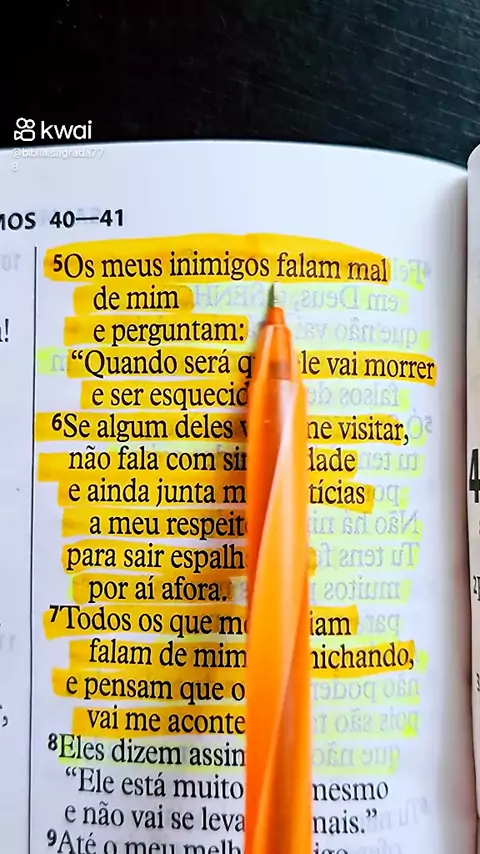 kwai
@bibliasagrada77
8
MOS 40—41
5Os meus inimigos falam mal
de mim
e perguntam:
“Quando será q le vai morrer
e ser esquecid
6Se algum deles v me visitar,
não fala com sin dade
e ainda junta m tícias
a meu respeit
para sair espalh
por aí afora.
7Todos os que m iam
falam de mim hichando,
e pensam que o
vai me aconte
8Eles dizem assim
“Ele está muito mesmo
e não vai se leva mais.”
9Até o meu melh igo